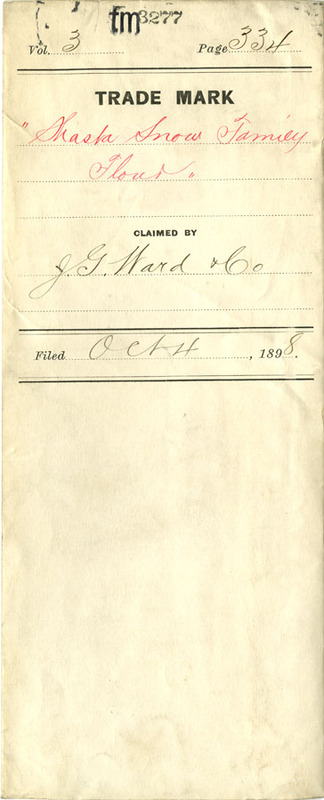 fm 3277
Vol. 3 Page 334
TRADE MARK
"Shasta Snow Family
Flour"
CLAIMED BY
J. G. Ward & Co
Filed Oct 4, 1898.